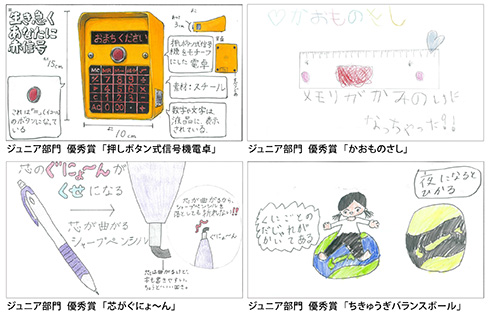 生き急ぐ
あなたに
赤信号
15cm
3cm
おまちください
押しボタン式信号
機をモチーフ
にした
電卓
素材:スチール
数字や文字は
液晶品に、表示
されている。
これは"="(イコール)
のボタンになって
いる
10cm
ジュニア部門 優秀賞 「押しボタン式信号機電卓」
♡かおものさし
メモリがかみのけに
なっちゃった!!
ジュニア部門 優秀賞 「かおものさし」
芯の
ぐにょ〜んが
くせになる
芯が曲がる
シャープペンシル
芯が曲がるから、
シャープペンシルを
落としてもおれない!!
ぐにょ〜ん
ジュニア部門 優秀賞 「芯がぐにょ〜ん」
くにごとの
だじゃれが
かいてある
夜になると
ひかる
ジュニア部門 優秀賞 「ちきゅうぎバランスボール」